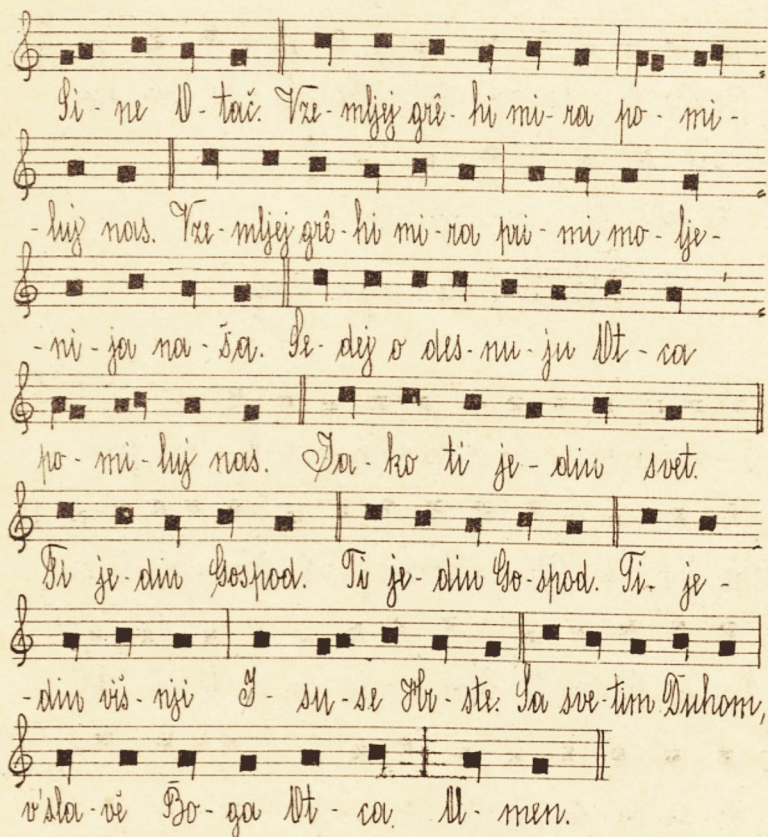 Si - ne O - tač. Vze - mljej grê - hi mi - ra po - mi -
- luj nas. Vze - mljej grê - hi mi - ra pri - mi mo - lje -
- ni - ja na - ša. Se - dej o des - nu - ju Ot - ca
po - mi - luj nas. Ja - ko ti je - din svet.
Ti je - din Gospod. Ti je - din Go - spod. Ti - je -
- din viš - nji I - su - se Hr - ste: Sa sve - tim Duhom,
v'sla - vě Bo - ga Ot - ca. A - men.